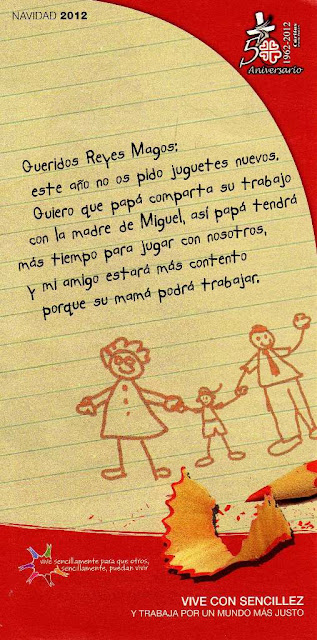 NAVIDAD 2012
50
Cáritas
1962-2012
Aniversario
Queridos Reyes Magos:
este año no os pido juguetes nuevos.
Quiero que papá comparta su trabajo
con la madre de Miguel, así papá tendrá
más tiempo para jugar con nosotros,
y mi amigo estará más contento
porque su mamá podrá trabajar.
vive sencillamente para que otros,
sencillamente, puedan vivir
VIVE CON SENCILLEZ
Y TRABAJA POR UN MUNDO MÁS JUSTO